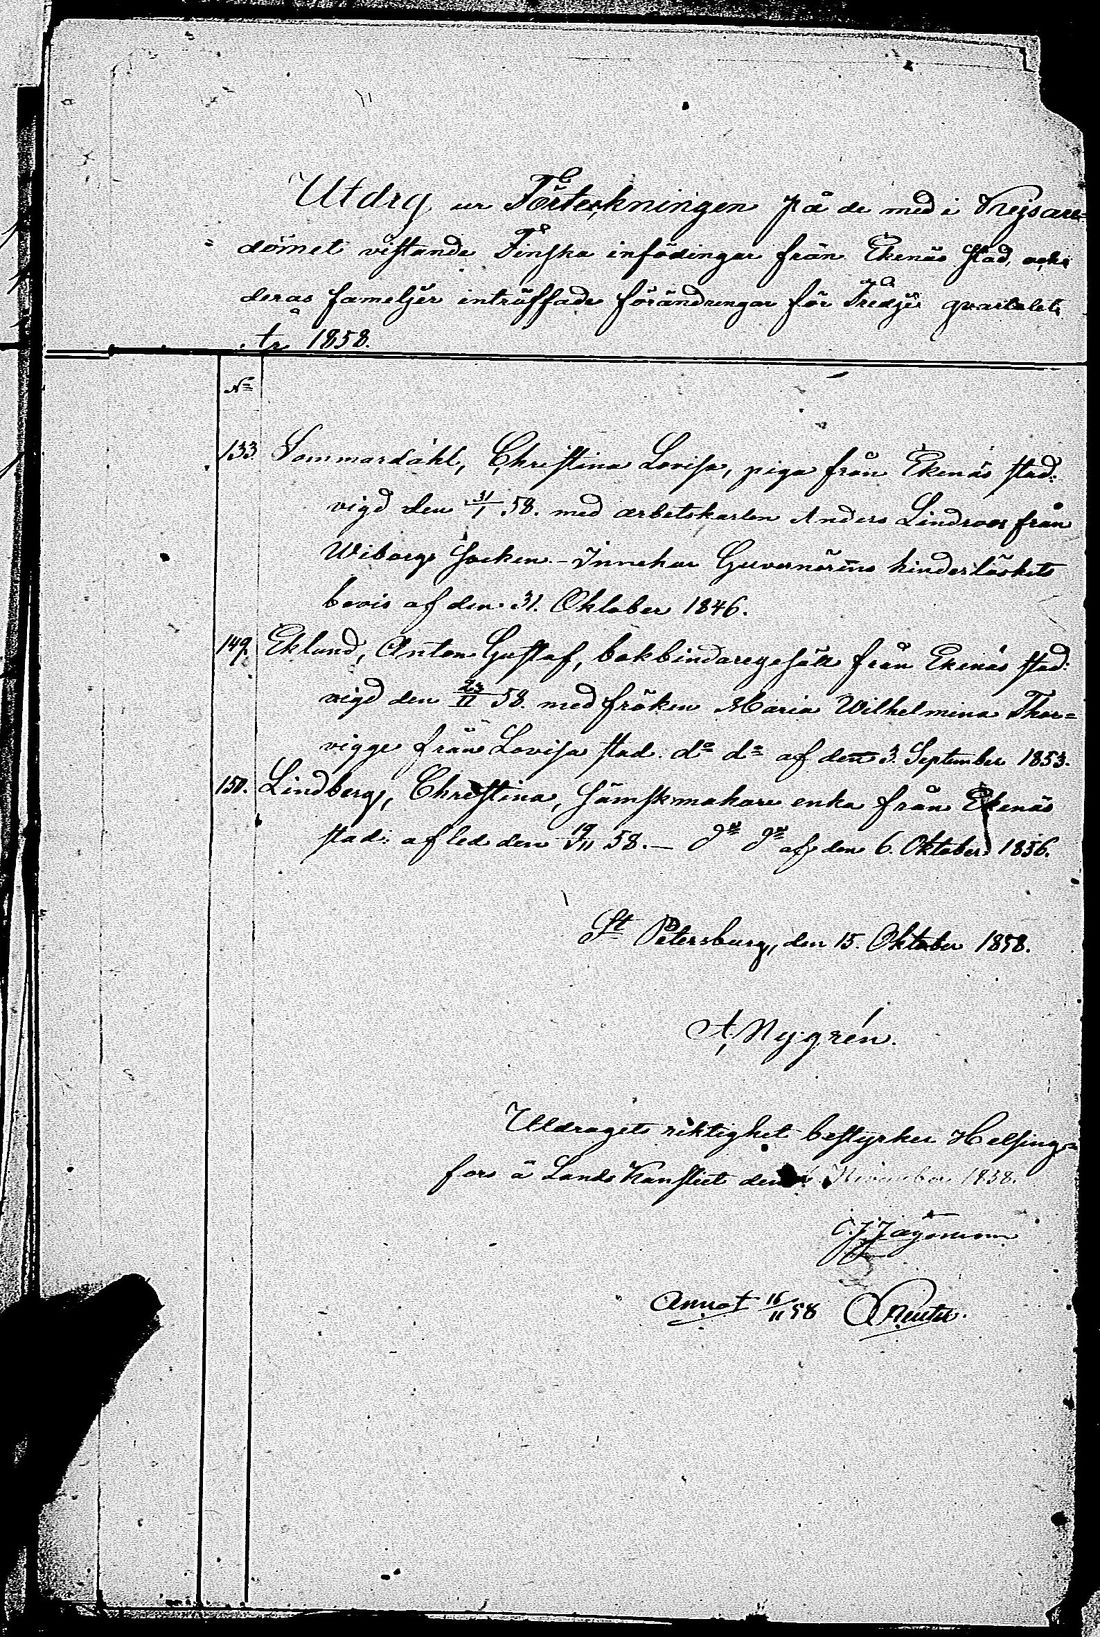 Utdrg ur Förteckningen på de med i Kejsare=
dömet vistande Finska infödingar från Ekenäs stad och
deras fameljer inträffade förändringar för Tredje qvartalet
år 1858.
No
133. Sommardahl, Christina Lovisa, piga från Ekenäs stad:
vigd den 31/1 58. med arbetskarlen Anders Lindroos från
Wiborgs Socken. - Innehar Guvernörens hinderlöshets
bevis af den 31. Oktober 1846.
149. Eklund, Anton Gustaf, bokbindaregesäll från Ekenäs stad:
vigd den 23/II 58. med fröken Maria Wilhelmina Thor=
vigge från Lovisa stad. do do af den 3. September 1853.
150. Lindberg, Christina, Sämskmakare enka från Ekenäs
stad: afled den 19/VI 58. - do do af den 6. Oktober 1856.
St Petersburg, den 15. Oktober 1858.
A. Nygrén.
Utdragets riktighet bestyrker Helsing=
fors å Lands Kansliet den November 1858.
C. J. Jägerhorn
Annot 16/11 58